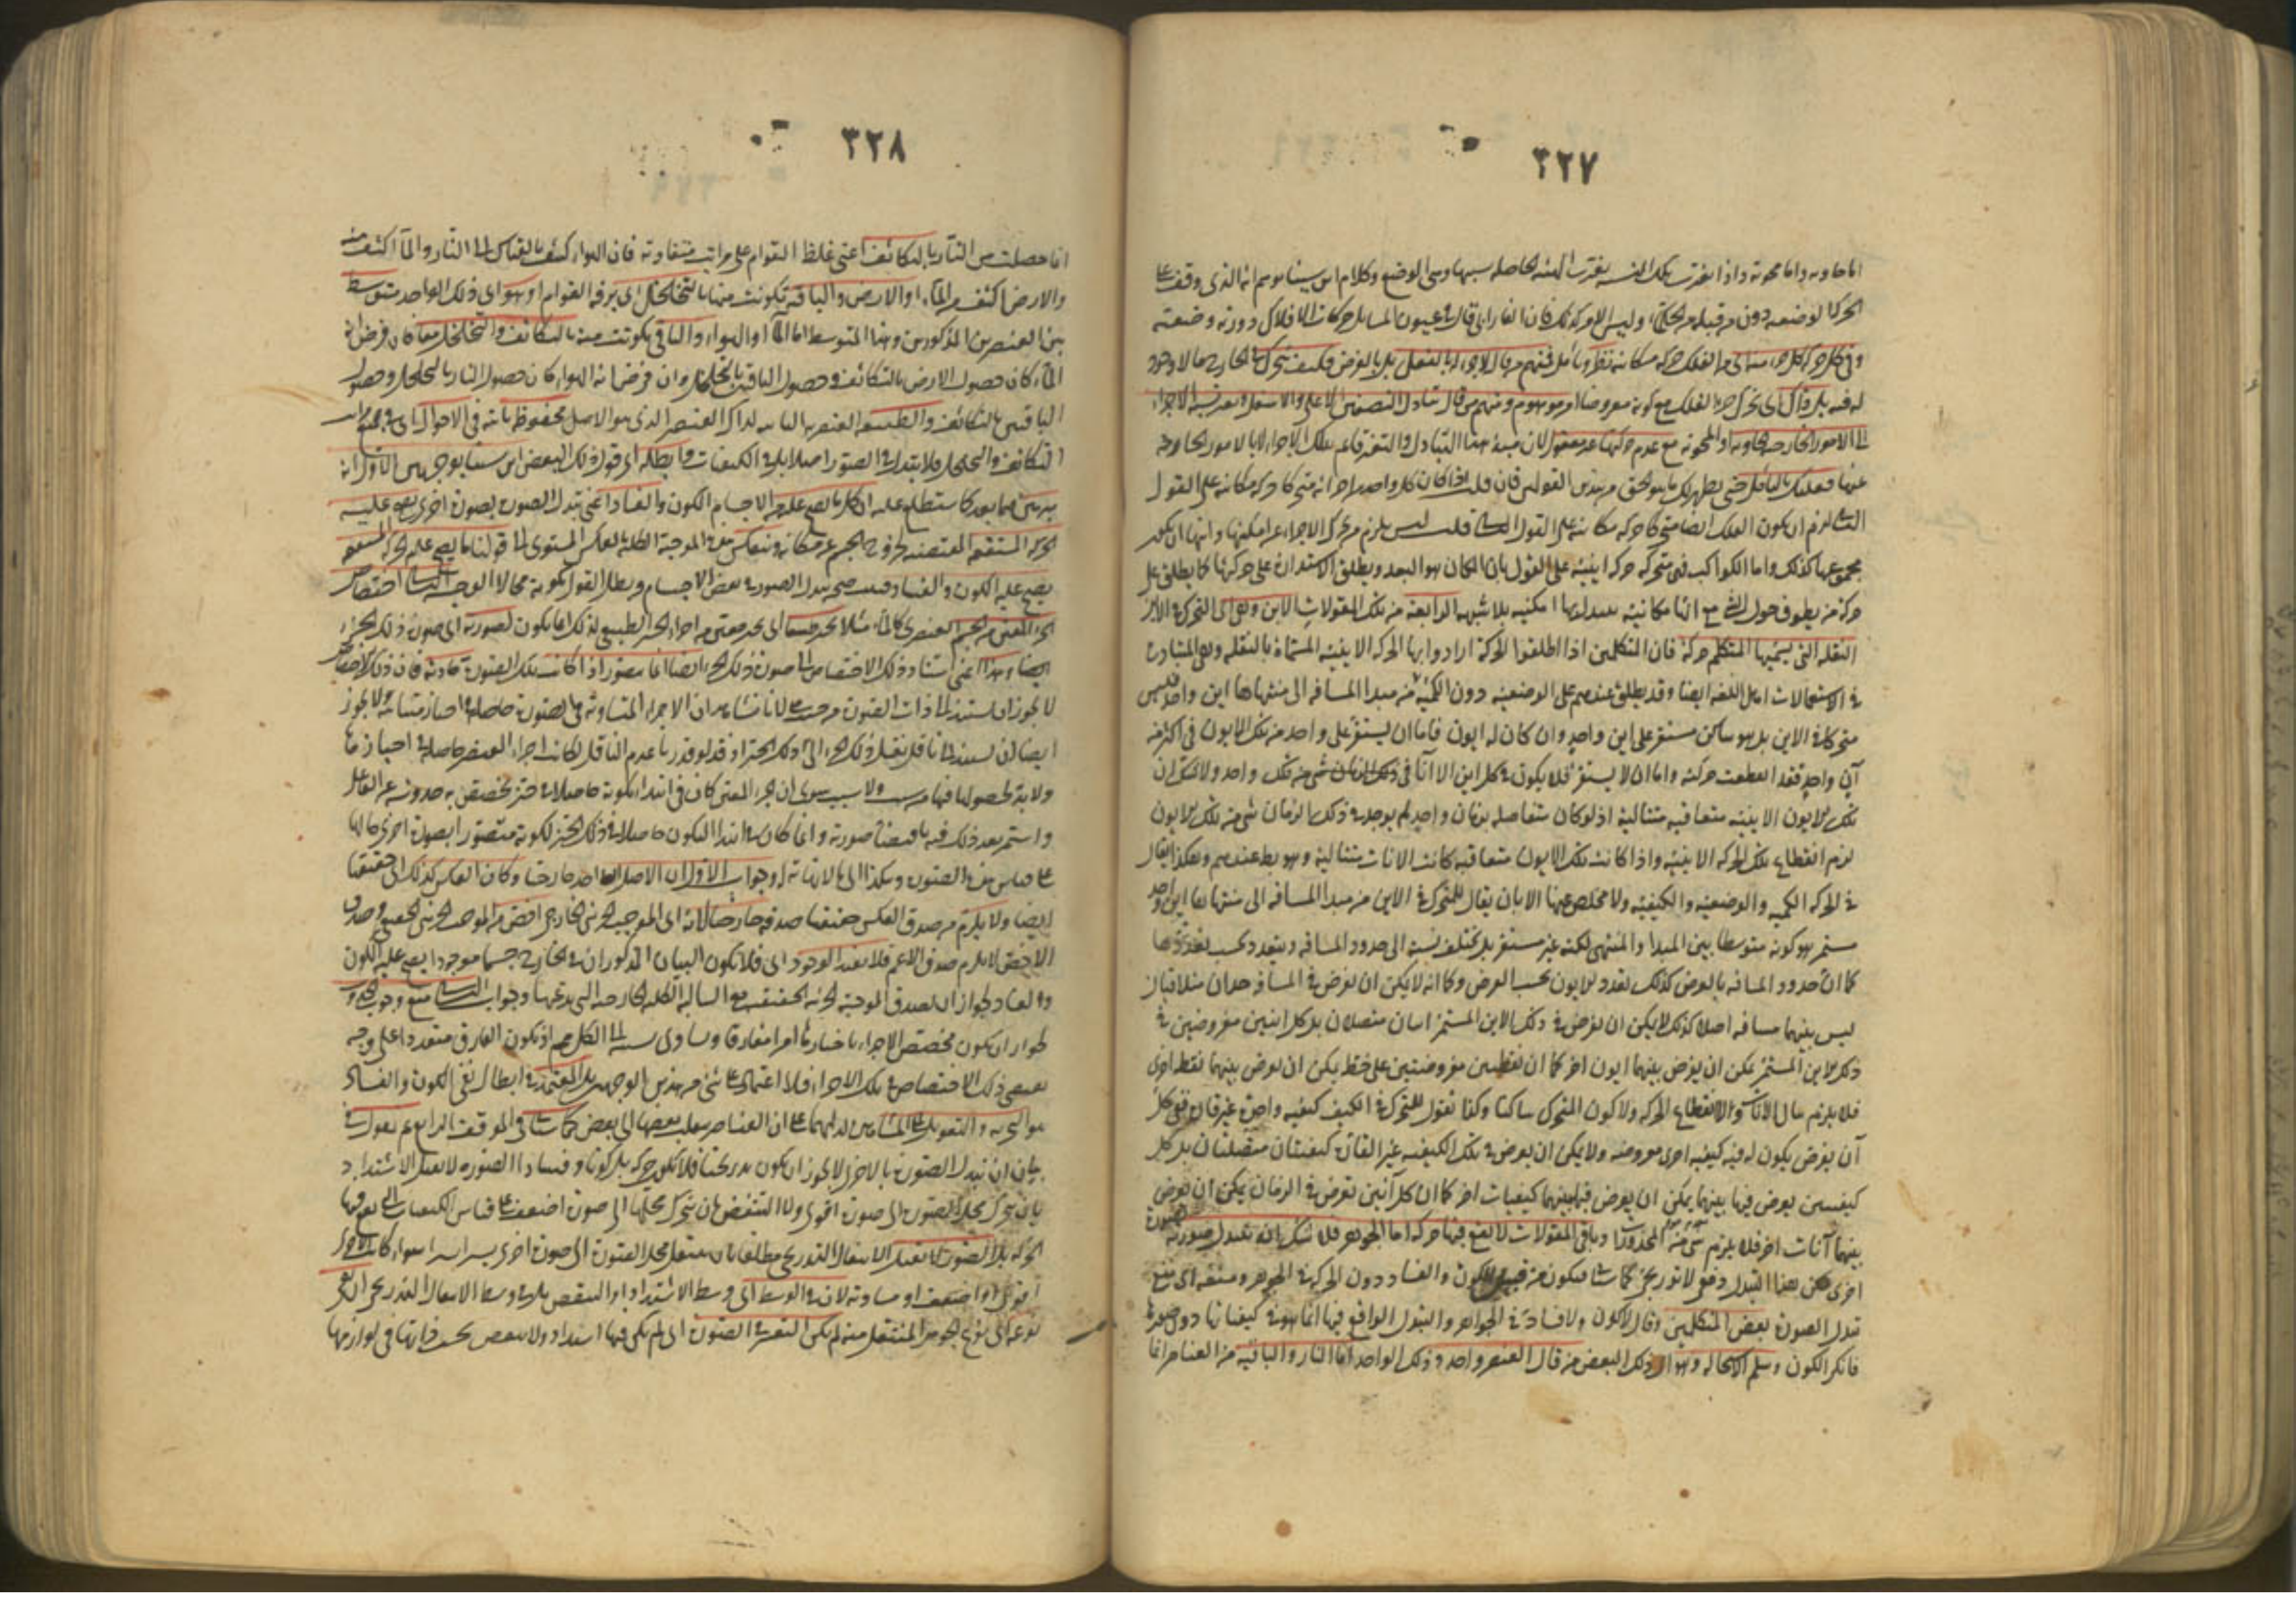 ٣٢٧
اما حاوية واما محوية واذا تغيرت تلك النسبة تغيرت الهيئة الحاصلة بسببها وهى الوضع وكلام ابن سينا يوهم انه الذى وقف على
الحركة الوضعية دون من قبله من الحكماء وليس الامر كذلك فان الفارابى قال فى عيون المسائل حركات الافلاك دورية وضعية
وفى كل حركة كل جزء منه اى من الفلك حركة مكانية نظر وتأمل فمنهم من قال لاجزء له بالفعل بل بالفرض فكيف يتحرك فى الخارج ما لا وجود
له فيه بل وقال اى تحرك جزء الفلك مع كونه مفروضا امر موهوم ومنهم من قال تبادل النصفين الاعلى والاسفل وتغير نسبة الاجزاء
الى الامور الخارجة الحاوية او المحوية مع عدم حركتها غير معقول لان مبدأ هذا التبادل والتغير قائم بتلك الاجزاء لا بالامور الخارجة
عنها فعليك بالتأمل حتى يظهر لك ما هو الحق من هذين القولين فان قلت اذا كان كل واحد من اجزائه متحركا حركة مكانية على القول
الثانى لزم ان يكون الفلك ايضا متحركا حركة مكانية على القول الثانى قلت ليس يلزم من تحرك الاجزاء عن امكنتها وانها ان يكون
مجموعها كذلك واما الكواكب فهى متحركة حركة اينية على القول بان المكان هو البعد ويطلق الاستدارة على حركتها كما يطلق على
حركة من يطوف حول الشئ مع انها مكانية يبدل بها امكنته بلا شبهة الرابعة من تلك المقولات الاين وهو اى التحرك فى الاين
النقلة التى يسميها المتكلم حركة فان المتكلمين اذا اطلقوا الحركة ارادوا بها الحركة الاينية المسماة بالنقلة وهى المتبادرة
فى الاستعمالات اهل اللغة ايضا وقد يطلق عندهم على الوضعية دون الكمية من مبدأ المسافة الى منتهاها اين واحد فليس
متحركا فى الاين بل هو ساكن مستقر على اين واحد وان كان له ايون فاما ان يستقر على واحد من تلك الايون فى اكثر من
آن واحد فقد انقطعت حركته واما ان لا يستقر فلا يكون فى كل اين الا آنا فى ذلك الزمان شئ من تلك واحد ولا شك ان
تلك الايون الاينية متعاقبة متتالية اذ لو كان متفاصلة بزمان واحد لم يوجد فى ذلك الزمان شئ من تلك الايون
لزم انقطاع تلك الحركة الاينية واذا كانت تلك الايون متعاقبة كانت الآنات متتالية وهو بط عندهم وهكذا يقال
فى الحركة الكمية والوضعية والكيفية ولا مخلص عنها الا بان يقال للمتحرك فى الاين من مبدأ المسافة الى منتهاها اين واحد
مستمر هو كونه متوسطا بين المبدأ والمنتهى لكنه غير مستقر بل تختلف نسبته الى حدود المسافة ويتعدد بحسب تعددها
كما ان حدود المسافة بالفرض كذلك تعدد الايون بحسب الفرض وكما انه لا يمكن ان يفرض فى المسافة حدان متلاقيان
ليس بينهما مسافة اصلا كذلك لا يمكن ان يفرض فى ذلك الاين المستمر اينان متصلان بل كل اينين مفروضين فى
ذلك الاين المستمر يمكن ان يفرض بينهما ايون اخر كما ان نقطتين مفروضتين على خط يمكن ان يفرض بينهما نقط اخرى
فلا يلزم تتالى الآنات ولا انقطاع الحركة ولا كون المتحرك ساكنا وكذا نقول للمتحرك فى الكيف كيفية واحدة غير قارة ففى كل
آن يفرض يكون له فيه كيفية اخرى مفروضة ولا يمكن ان يفرض فى تلك الكيفية غير القارة كيفيتان متصلتان بل كل
كيفيتين يفرض فيها بينهما يمكن ان يفرض فيما بينهما كيفيات اخر كما ان كل آنين تفرض فى الزمان يمكن ان يفرض
بينهما آنات اخر فلا يلزم شئ من المحذورات وباقى المقولات لا تقع فيها حركة اما الجوهر فلا شك انه يتبدل صورته بصورة
اخرى لكن هذا التبدل دفعى لا تدريجى كما ستأتى فيكون من قبيل الكون والفساد دون الحركة فى الجوهر ومنعه اى منع
تبدل الصورة بعض المتكلمين وقال لا كون ولا فساد فى الجواهر والتبدل الواقع فيها انما هو فى كيفياتها دون صورها
فانكر الكون وسلم الاستحالة وهو اى ذلك البعض من قال العنصر واحد وذلك الواحد اما النار والباقية من العناصر انما
٣٢٨
انما حصلت من النار بالتكاثف اعنى غلظ القوام على مراتب متفاوتة فان الهواء كثيف بالقياس الى النار والماء اكثف منه
والارض اكثف من الماء او الارض والباقية تكونت منها بالتخلخل اى برقة القوام او هو اى ذلك الواحد متوسط
بين العنصرين المذكورين وهذا المتوسط اما الماء او الهواء والباقى تكونت منه بالتكاثف والتخلخل معا فان فرض انه
الماء كان حصول الارض بالتكاثف وحصول الباقيين بالتخلخل وان فرض انه الهواء كان حصول النار بالتخلخل وحصول
الباقيين بالتكاثف والطبيعة العنصرية الثابتة لذلك العنصر الذى هو الاصل محفوظة ثابتة فى الاحوال اى فى جميع مراتب
التكاثف والتخلخل فلا تبدل فى الصور اصلا بل فى الكيفيات وابطله اى قول ذلك البعض ابن سينا بوجهين الاول انه
يبرهن فيما بعد كما ستطلع عليه ان كل ما يصح عليه من الاجسام الكون والفساد اعنى تبدل الصورة بصورة اخرى يصح عليه
الحركة المستقيمة المقتضية لخروج الجسم عن مكانه وينعكس هذه الموجبة الكلية بالعكس المستوى الى قولنا ما يصح عليه الحركة المستقيمة
يصح عليه الكون والفساد فثبت صحة تبدل الصورة فى بعض الاجسام وبطل القول بكونه محالا الوجه الثانى اختصاص
الجزء المعين من الجسم العنصرى كالماء مثلا بحيز معين من اجزاء الحيز الطبيعى لذلك انما يكون لصورته اى صورة ذلك الجزء
ايضا وهذا اعنى استناد ذلك الاختصاص الى صورة ذلك الجزء ايضا انما يتصور اذا كانت تلك الصورة حادثة فان ذلك الاختصاص
لا يجوز ان يستند الى ذات الصورة من حيث هى لانا نشاهد ان الاجزاء المتساوية فى الصورة حاصلة فى احياز متباينة ولا يجوز
ايضا ان يستند الى ناقل نقل ذلك الجزء الى ذلك الحيز اذ قد لو قدرنا عدم الناقل لكانت اجزاء العنصر حاصلة فى احيازها
ولا بد لحصولها فيها من سبب ولا سبب سوى ان الجزء المعين كان فى ابتداء كونه حاصلا فى حيز تخصص به حدوثه عن الفاعل
واستمر بعد ذلك فيه باقتضاء صورته وانما كان فى ابتداء الكون حاصلا فى ذلك الحيز لكونه متصورا بصورة اخرى حالها
على قياس هذه الصورة وهكذا الى ما لا نهاية له وجواب الاول ان الاصل قد اخذ خارجيا وكان العكس كذلك اى حقيقيا
ايضا ولا يلزم من صدق العكس حقيقيا صدقه خارجيا لانه اى الموجب الجزئى الخارجى اخص من الموجب الجزئى الحقيقى وصدق
الاخص لا يلزم صدق الاعم فلا يفيد الوجود اى فلا يكون البيان المذكور ان فى الخارج جسما موجودا يصح عليه الكون
والفساد لجواز ان يصدق الموجبة الجزئية الحقيقية مع السالبة الكلية الخارجية التى يدعيها وجواب الثانى منع وجوب الحدوث
لجواز ان يكون مخصص الاجزاء باحيازها امرا مفارقا وتساوى نسبته الى الكل ممنوع اذ يكون المفارق متعددا على وجه
يقتضى ذلك الاختصاص فى تلك الاجزاء فلا اعتماد على شئ من هذين الوجهين بل المعتمد فى ابطال نفى الكون والفساد
هو التجربة والتعويل على المشاهدة الدالة على ان العناصر ينقلب بعضها الى بعض كما سيأتى فى الموقف الرابع ثم نقول فى
بيان ان تبدل الصورة بالاخرى لا يجوز ان يكون تدريجيا فلا يكون حركة بل كونا وفسادا الصورة لا تقبل الاشتداد
بان يتحرك محل الصورة الى صورة اقوى ولا التنقص بان يتحرك محلها الى صورة اضعف على قياس الكيفيات التى يقع فيها
الحركة بل الصورة لا تقبل الانتقال التدريجى مطلقا بان ينتقل محل الصورة الى صورة اخرى يسيرا يسيرا سواء كانت الاخرى
اقوى او اضعف او مساوية لان فى الوسط اى وسط الاشتداد او التنقص بل فى وسط الانتقال التدريجى ان بقى
نوعه اى نوع الجوهر المنتقل منه لم يكن التغير فى الصورة اى لم يكن فيها اشتداد ولا تنقص بحسب ذاتها بل فى لوازمها